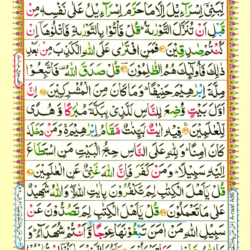 لِّبَنِىۡۤ اِسۡرَآءِيۡلَ اِلَّا مَا حَرَّمَ اِسۡرَآءِيۡلُ عَلٰى نَفۡسِهٖ مِنۡ
قَبۡلِ اَنۡ تُنَزَّلَ التَّوۡرٰٮةُ ؕ قُلۡ فَاۡتُوۡا بِالتَّوۡرٰٮةِ فَاتۡلُوۡهَاۤ اِنۡ
كُنۡتُمۡ صٰدِقِيۡنَ فَمَنِ افۡتَرٰى عَلَى اللّٰهِ الۡكَذِبَ مِنۡۢ بَعۡدِ
ذٰلِكَ فَاُولٰٓئِكَ هُمُ الظّٰلِمُوۡنَ قُلۡ صَدَقَ اللّٰهُ فَاتَّبِعُوۡا
مِلَّةَ اِبۡرٰهِيۡمَ حَنِيۡفًا ؕ وَمَا كَانَ مِنَ الۡمُشۡرِكِيۡنَ اِنَّ
اَوَّلَ بَيۡتٍ وُّضِعَ لِلنَّاسِ لَلَّذِىۡ بِبَكَّةَ مُبٰرَكًا وَّهُدًى
لِّلۡعٰلَمِيۡنَ فِيۡهِ اٰيٰتٌۢ بَيِّنٰتٌ مَّقَامُ اِبۡرٰهِيۡمَ وَمَنۡ دَخَلَهٗ
كَانَ اٰمِنًا ؕ وَلِلّٰهِ عَلَى النَّاسِ حِجُّ الۡبَيۡتِ مَنِ اسۡتَطَاعَ
اِلَيۡهِ سَبِيۡلًا ؕ وَمَنۡ كَفَرَ فَاِنَّ اللّٰهَ غَنِىٌّ عَنِ الۡعٰلَمِيۡنَ
قُلۡ يٰۤاَهۡلَ الۡكِتٰبِ لِمَ تَكۡفُرُوۡنَ بِاٰيٰتِ اللّٰهِ وَاللّٰهُ شَهِيۡدٌ
عَلٰى مَا تَعۡمَلُوۡنَ قُلۡ يٰۤاَهۡلَ الۡكِتٰبِ لِمَ تَصُدُّوۡنَ عَنۡ
سَبِيۡلِ اللّٰهِ مَنۡ اٰمَنَ تَبۡغُوۡنَهَا عِوَجًا وَّاَنۡتُمۡ شُهَدَآءُ